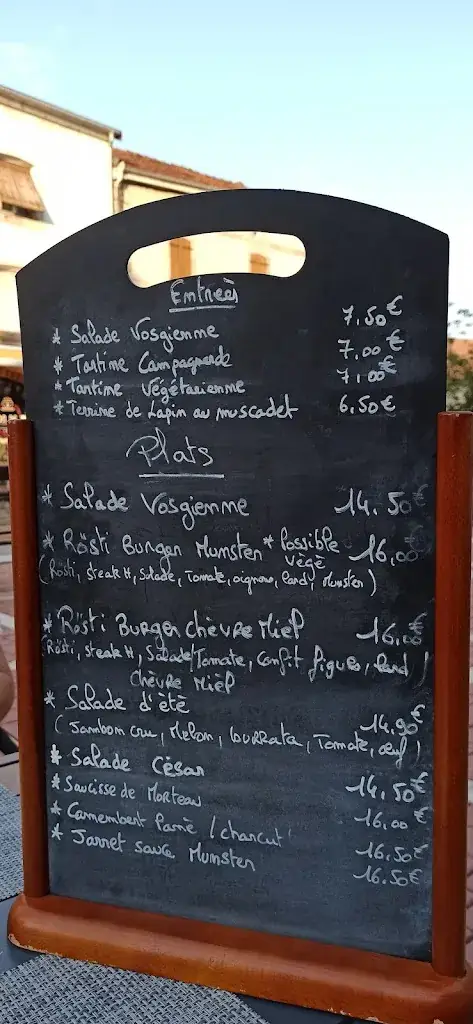 Entrées
* Salade Vosgienne 7,50€
* Tartine Campagnarde 7,00€
* Tartine Végétarienne 7,00€
* Terrine de Lapin au muscadet 6,50€
Plats
* Salade Vosgienne 14.50€
* Rösti Burger Munster * Possible végé 16,00€
(Rösti, Steak H, Salade, Tomate, oignons, lard, Munster)
* Rösti Burger Chèvre Miel 16,00€
(Rösti, Steak H, Salade/Tomate, Confit figues, lard,
Chèvre Miel)
* Salade d'été 14.90€
(Jambon cru, Melon, burrata, Tomate, oeuf)
* Salade César 14,50€
* Saucisse de Morteau 16,00€
* Camembert Pané / charcut' 16.50€
* Jarret sauce Munster 16.50€